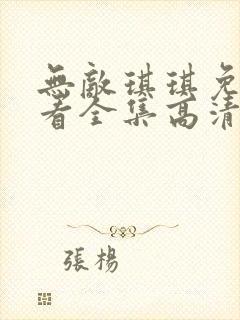 無敵琪琪免
看全集高清
張楊